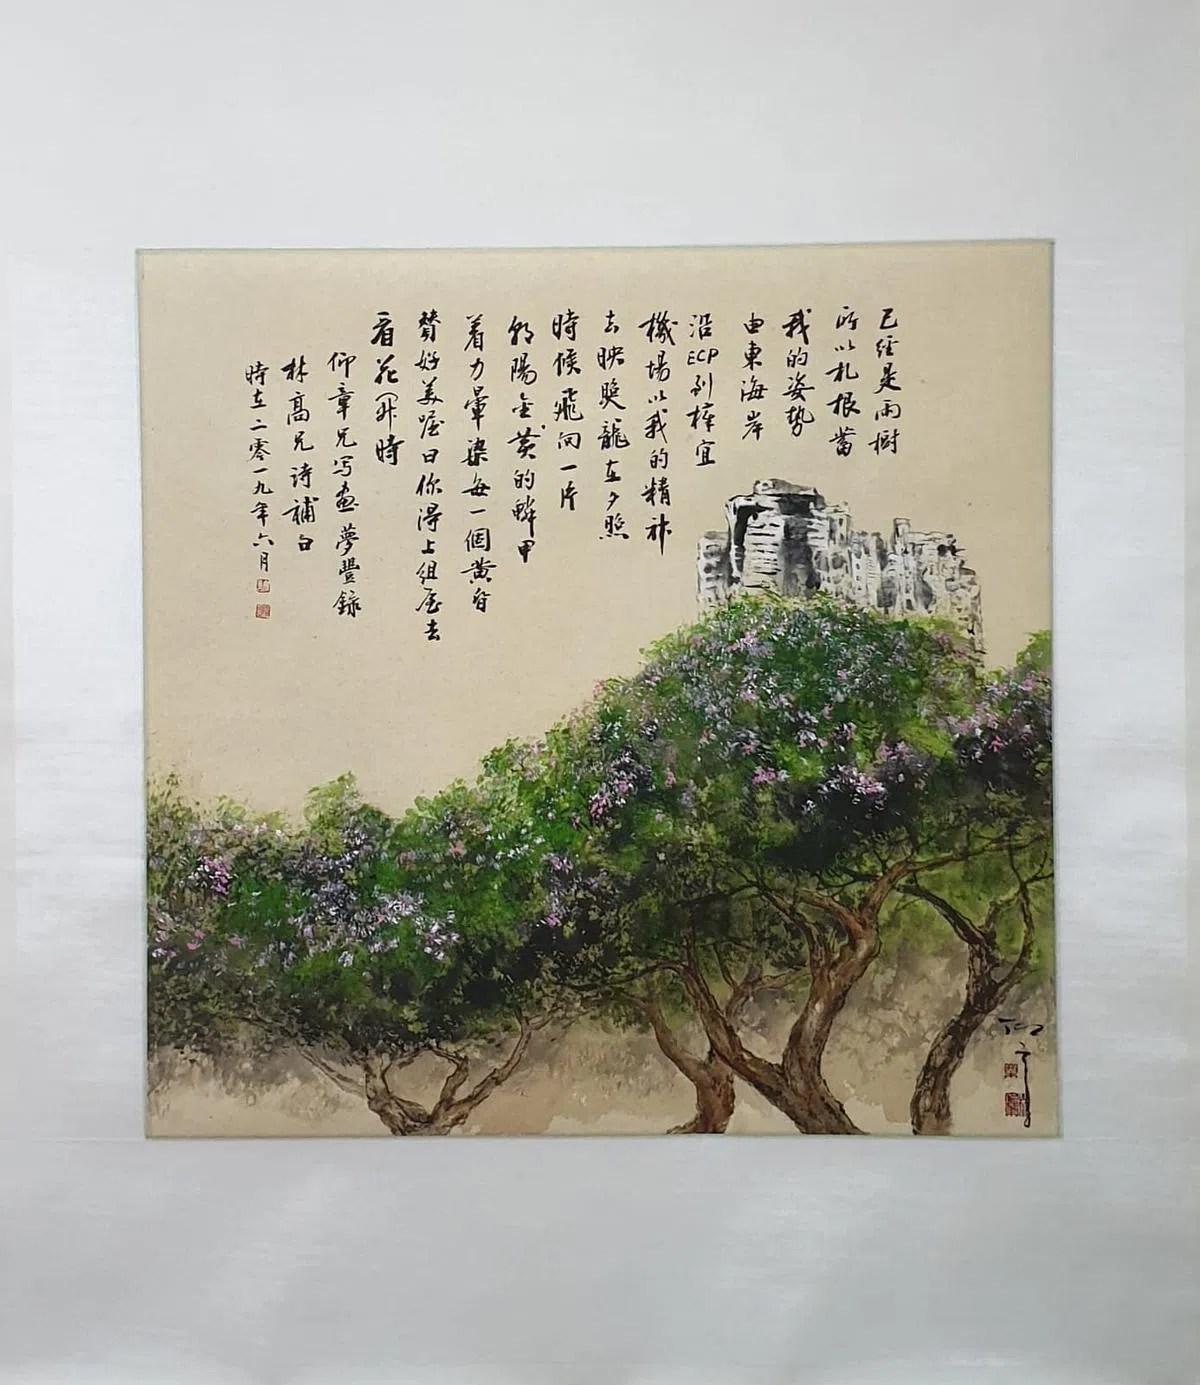 已經是雨樹
所以札根蓄
我的姿勢
由東海岸
沿ECP到樟宜
機場以我的精神
去映照龍在夕照
時候飛向一片
朝陽金黃的鱗甲
着力暈染每一個黃昏
贊好美喔曰你得上組屋去
看花開時
仰章兄写畫夢豐錄
林高兄诗補白
時在二零一九年六月
仰章